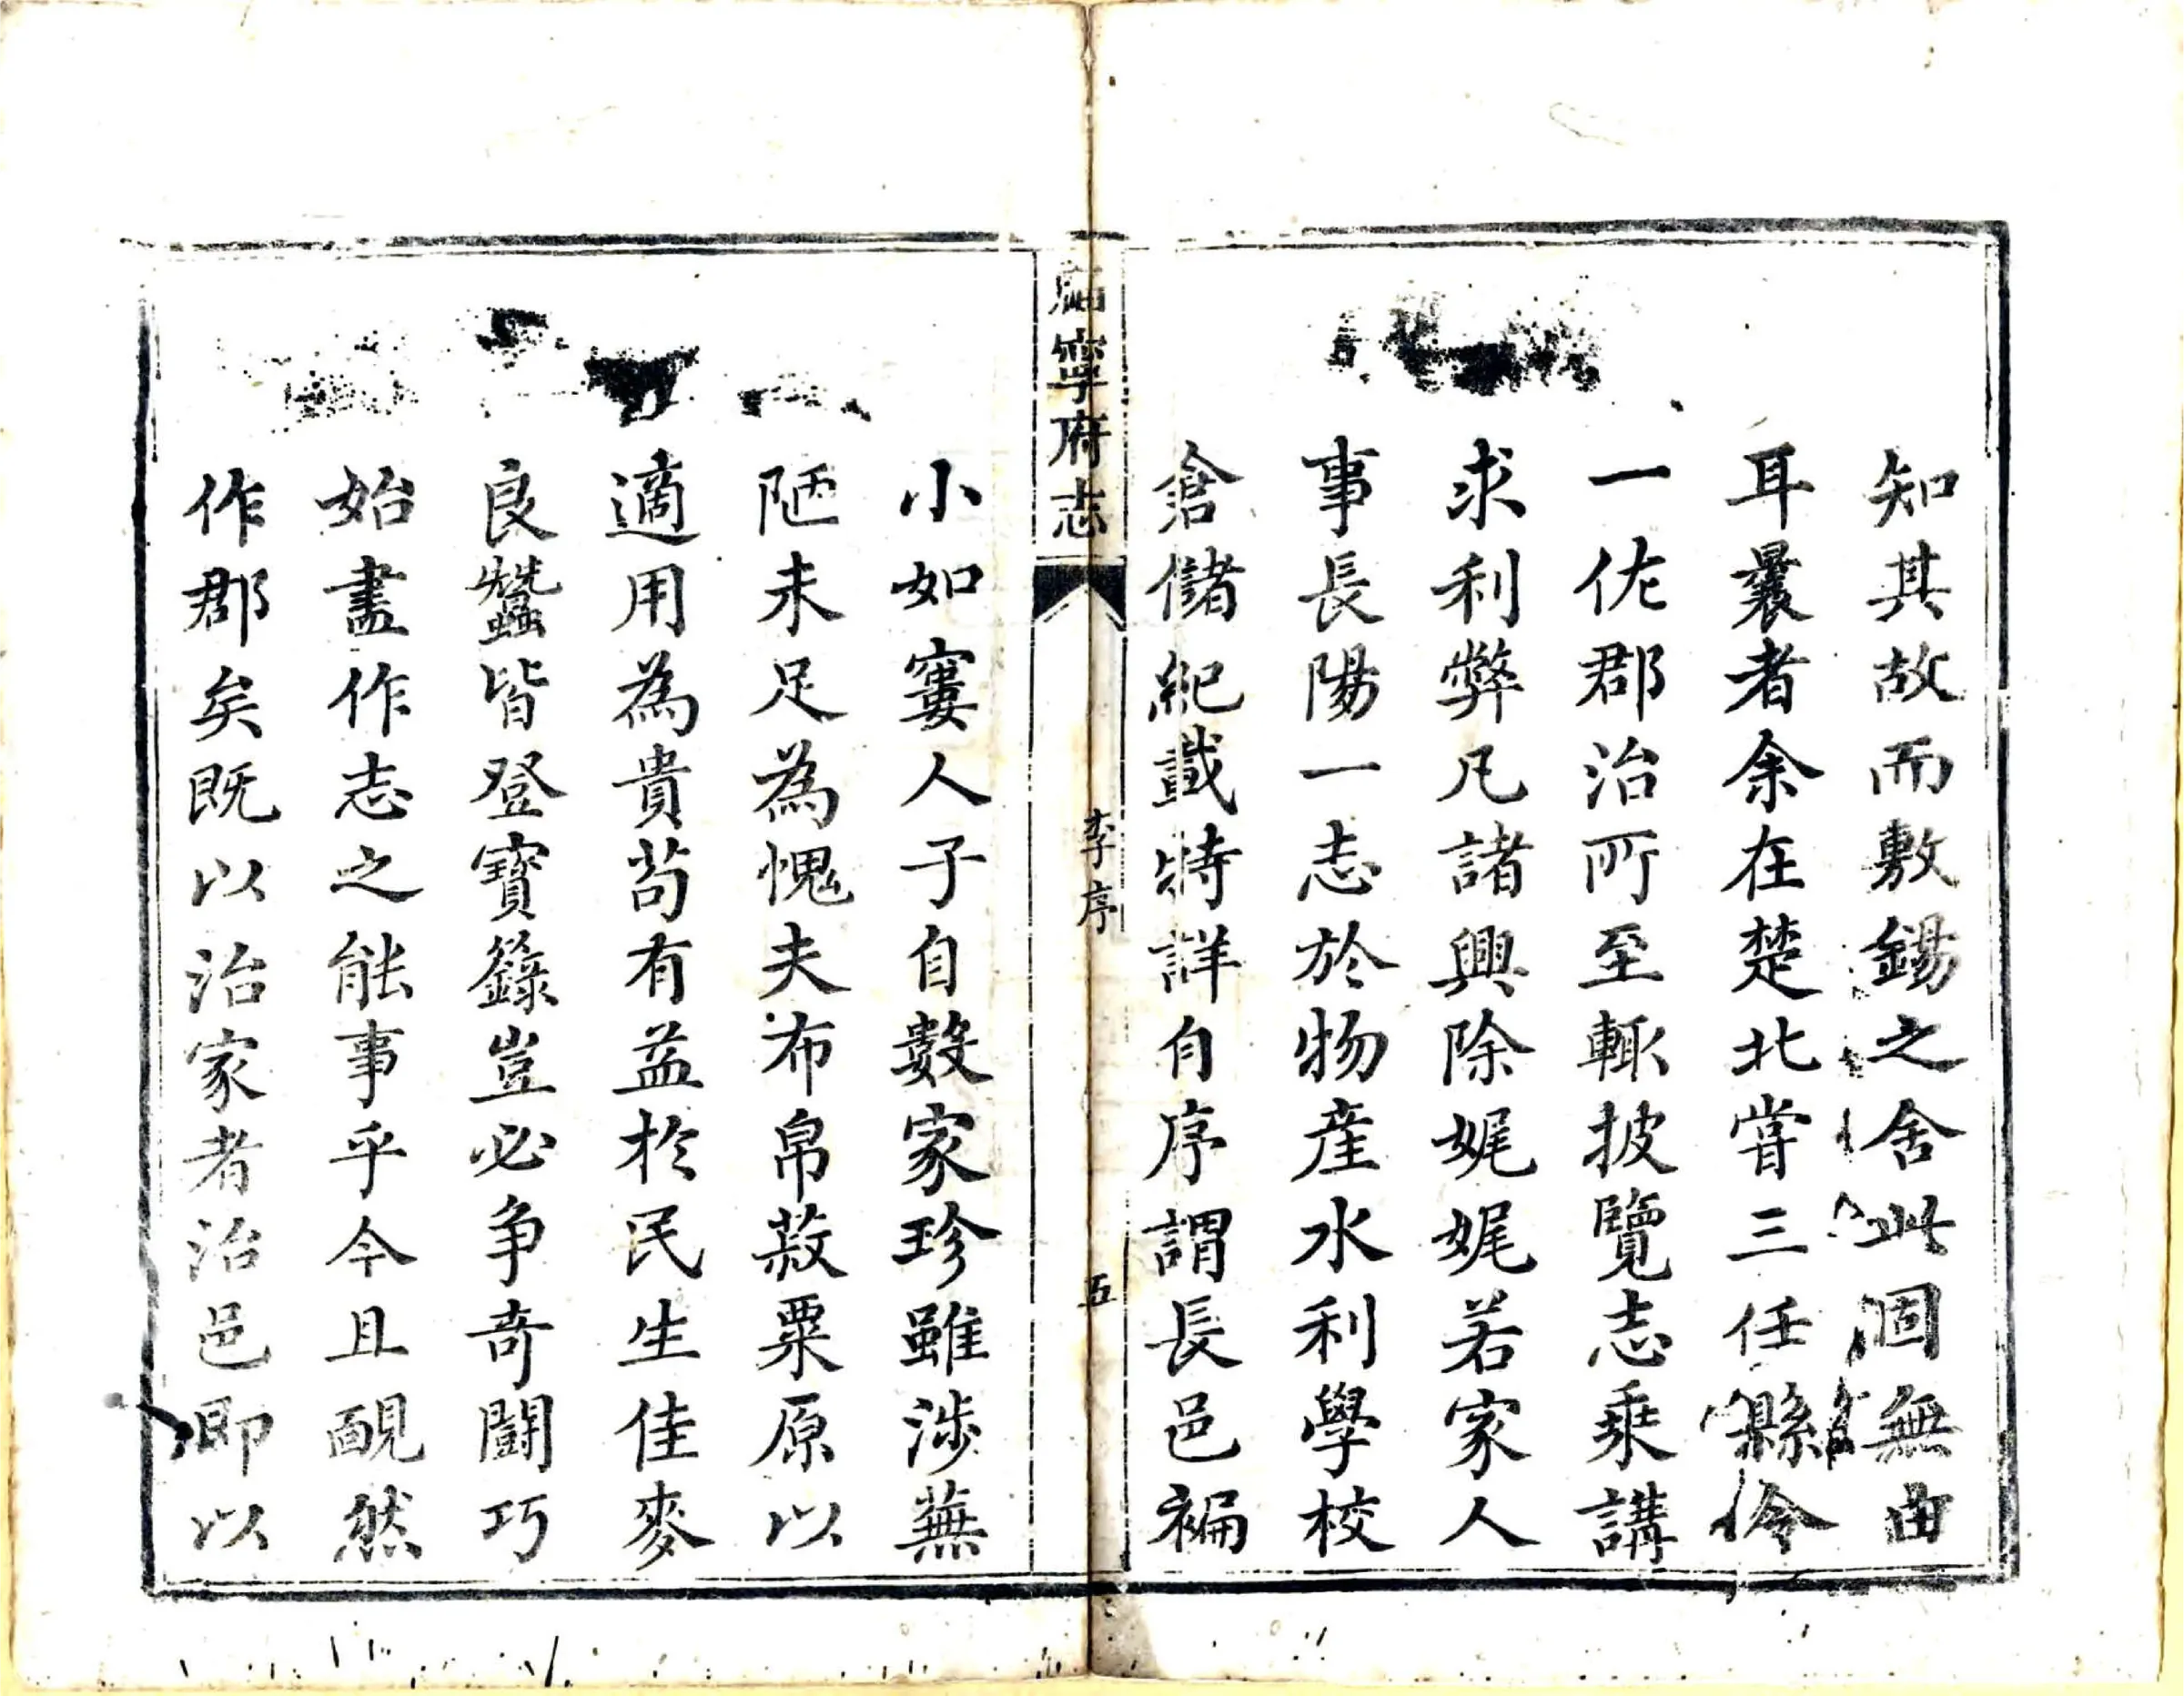 知其故而敷錫之舍此固無由
耳曩者余在楚北嘗三任縣令
一佐郡治所至輒披覽志乘講
求利弊凡諸興除娓娓若家人
事長陽一志於物産水利學校
倉儲紀載特詳自序謂長邑褊
福寧府志
李序
五
小如窶人子自數家珍雖涉蕪
陋未足為愧夫布帛菽粟原以
適用為貴苟有益於民生佳麥
良蠶皆登寶籙豈必争奇鬪巧
始盡作志之能事乎今且靦然
作郡矣既以治家者治邑即以